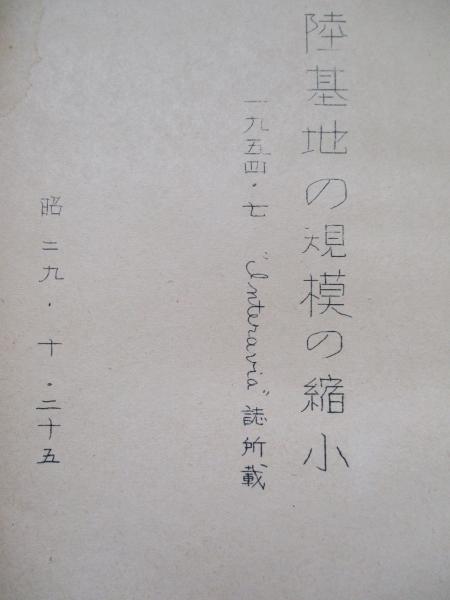 陸基地の規模の縮小
一九五四・七 "Interavia" 誌所載
昭二九・十・二十五